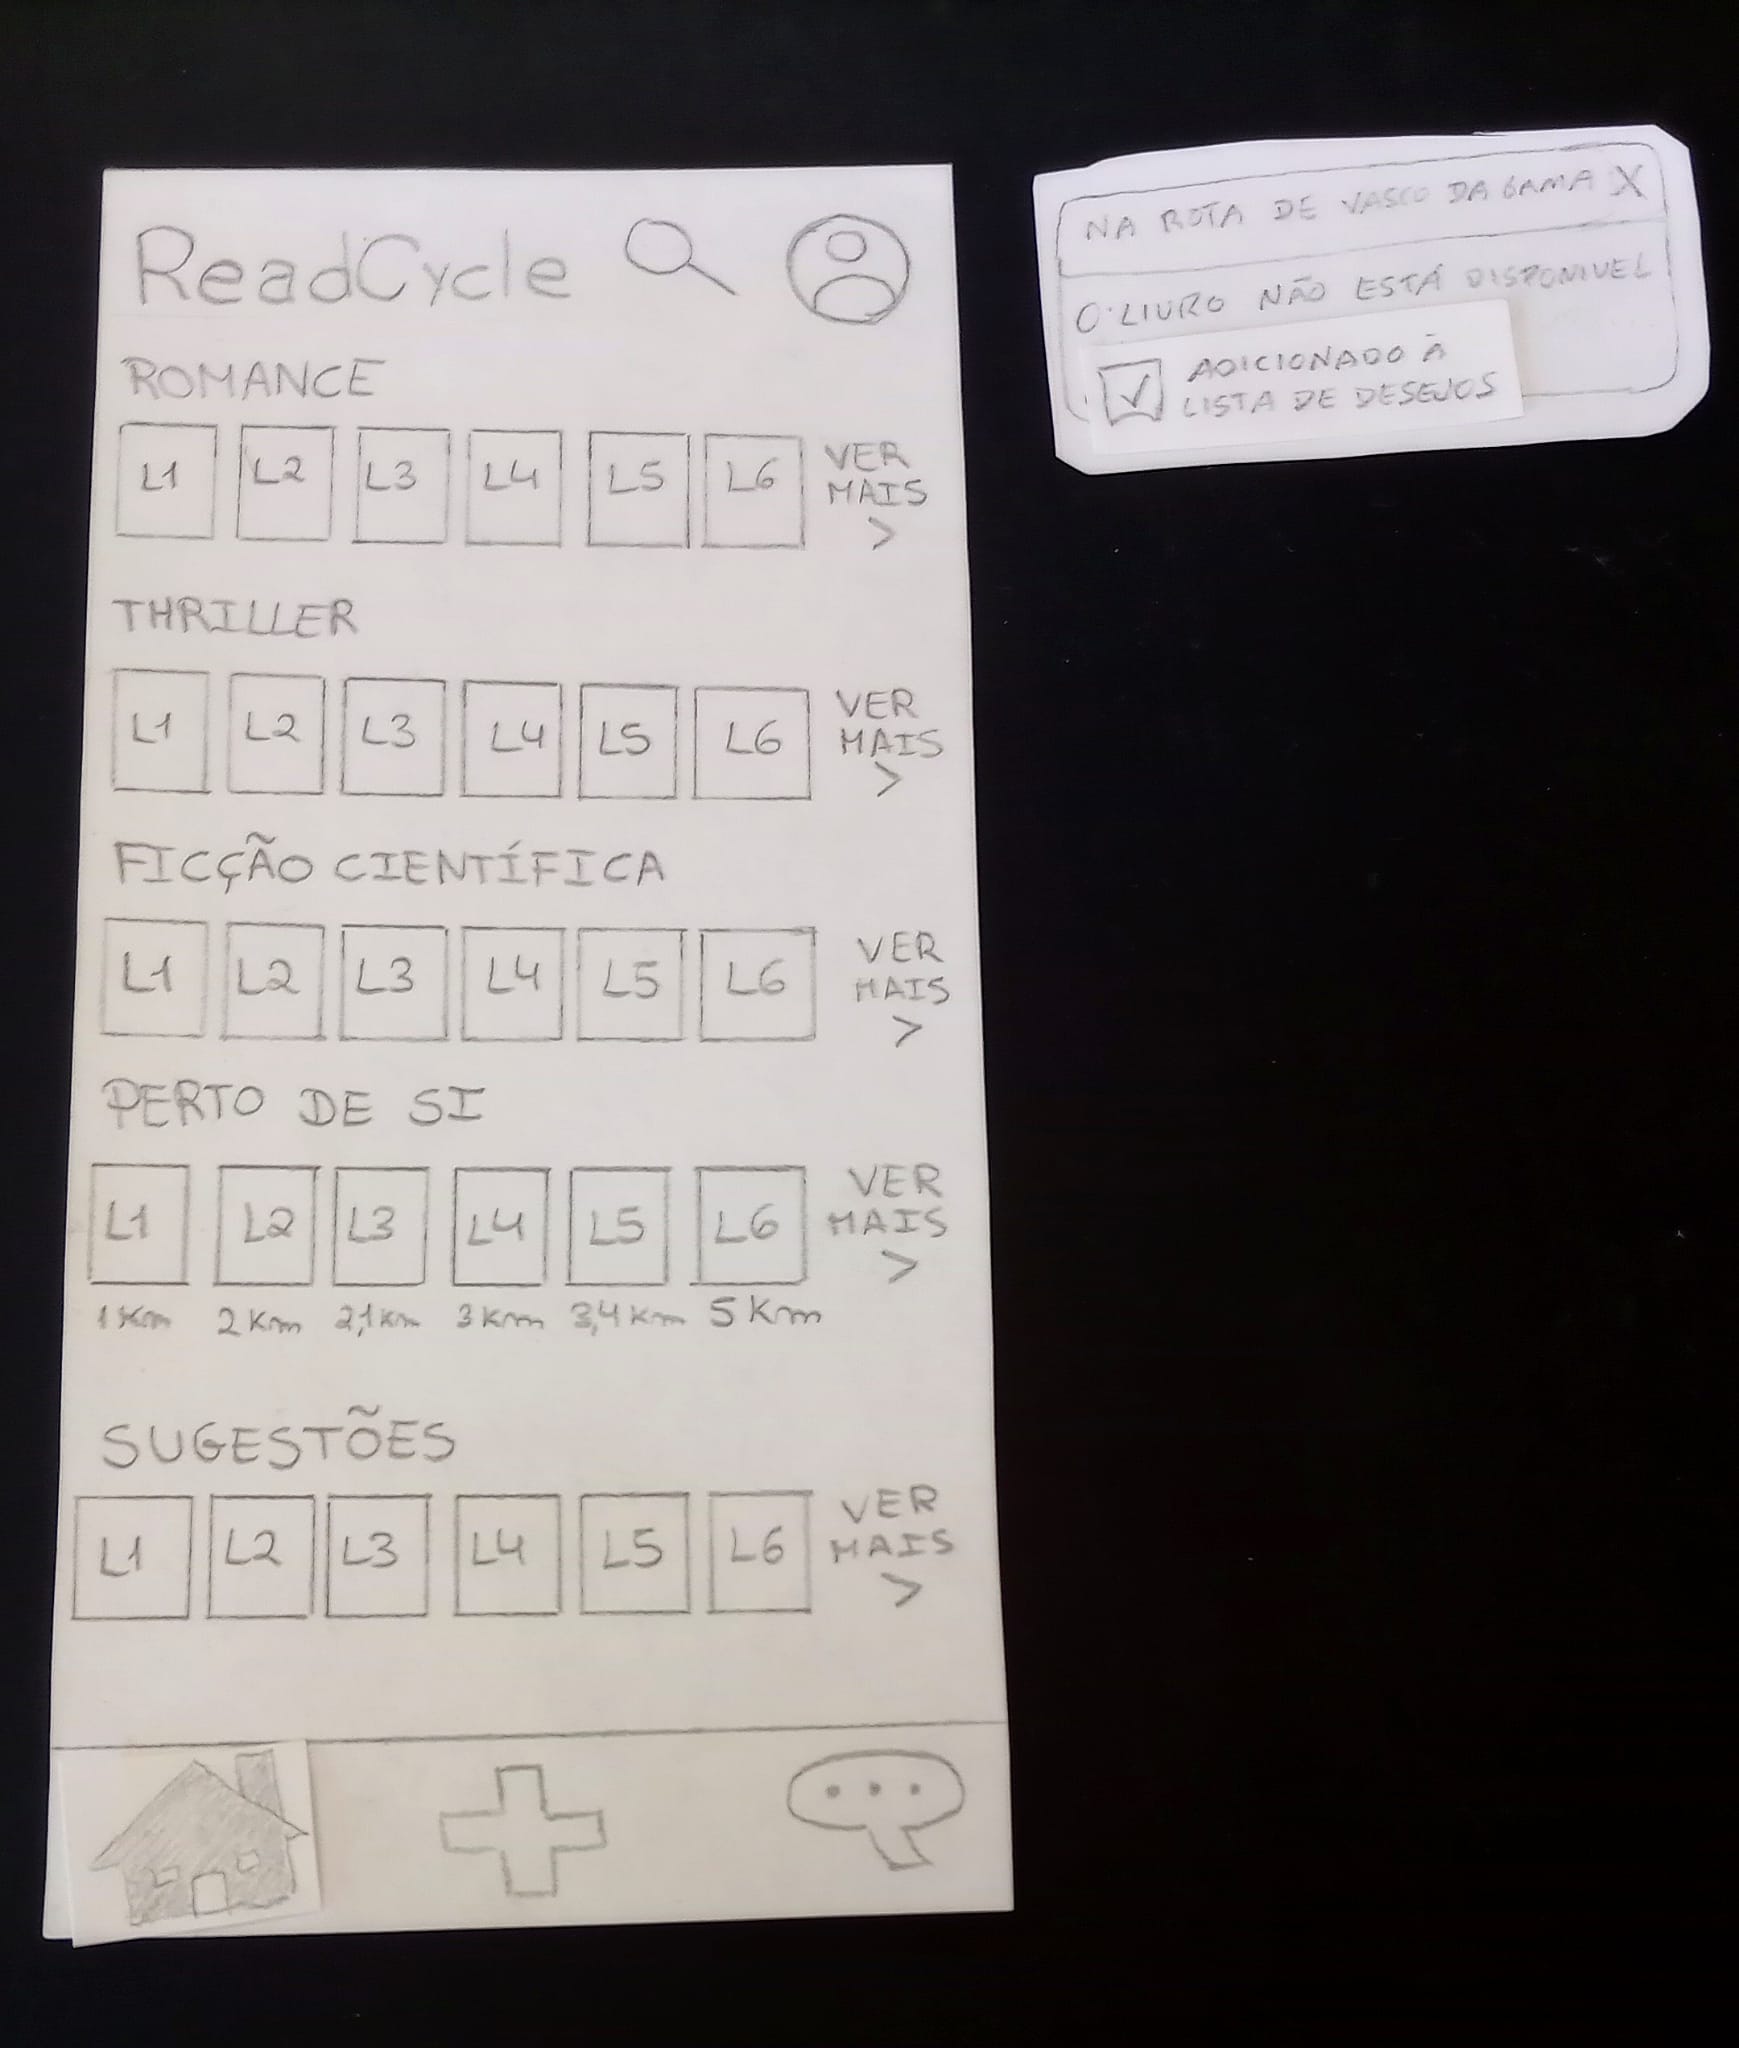 ReadCycle
ROMANCE
L1 L2 L3 L4 L5 L6 VER
MAIS
>
THRILLER
L1 L2 L3 L4 L5 L6 VER
MAIS
>
FICÇÃO CIENTÍFICA
L1 L2 L3 L4 L5 L6 VER
MAIS
>
PERTO DE SI
L1 L2 L3 L4 L5 L6 VER
MAIS
>
1 Km 2 Km 2,1 Km 3 Km 3,4 Km 5 Km
SUGESTÕES
L1 L2 L3 L4 L5 L6 VER
MAIS
>
NA ROTA DE VASCO DA GAMA X
O LIVRO NÃO ESTÁ DISPONIVEL
ADICIONADO À
LISTA DE DESEJOS